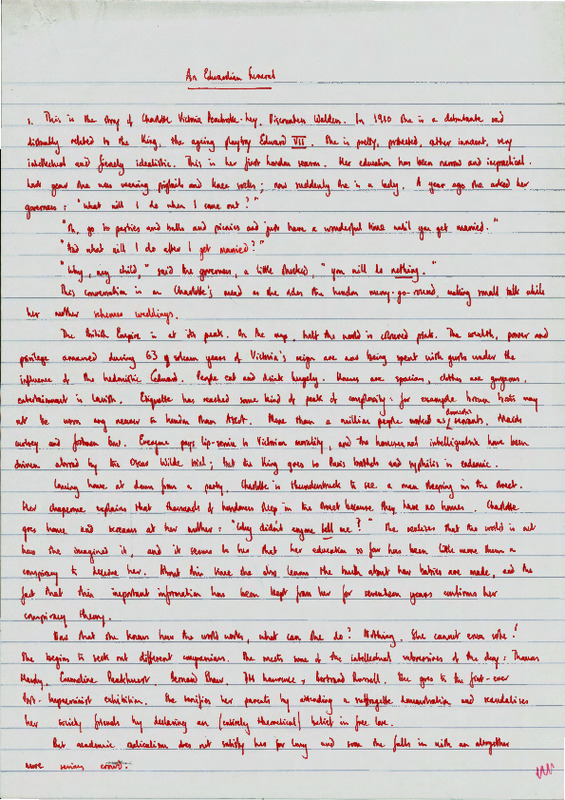 An Edwardian Funeral
1. This is the story of Charlotte Victoria Pembroke-Hay, Viscountess Walden. In 1910 she is a debutante and
distantly related to the King, the ageing playboy Edward VII. She is pretty, protected, rather innocent, very
intellectual and fiercely idealistic. This is her first London season. Her education has been narrow and impractical.
Last year she was wearing pigtails and knee socks; now suddenly she is a lady. A year ago she asked her
governess: "What will I do when I come out?"
"Oh, go to parties and balls and picnics and just have a wonderful time until you get married."
"And what will I do after I get married?"
"Why, my child," said the governess, a little shocked, "you will do nothing."
This conversation is in Charlotte's mind as she rides the London merry-go-round, making small talk while
her mother schemes weddings.
The British Empire is at its peak. On the map, half the world is coloured pink. The wealth, power and
privilege amassed during 63 years of Victoria's reign are now being spent with gusto under the
influence of the hedonistic Edward. People eat and drink hugely. Houses are spacious, clothes are gorgeous,
entertainment is lavish. Etiquette has reached some kind of peak of complexity: for example brown boots may
not be worn any nearer to London than Ascot. More than a million people worked as domestic servants. Maids
curtsey and footmen bow. Everyone pays lip-service to Victorian morality, and the homosexual intelligentsia have been
driven abroad by the Oscar Wilde trial; but the King goes to Paris brothels and syphilis is endemic.
Coming home at dawn from a party, Charlotte is thunderstruck to see a man sleeping in the street.
Her chaperone explains that thousands of Londoners sleep in the street because they have no homes. Charlotte
goes home and screams at her mother: "Why didn't anyone tell me?" She realises that the world is not
how she imagined it, and it seems to her that her education so far has been little more than a
conspiracy to deceive her. About this time she also learns the truth about how babies are made, and the
fact that this important information has been kept from her for seventeen years confirms her
conspiracy theory.
Now that she knows how the world works, what can she do? Nothing. She cannot even vote!
She begins to seek out different companions. She meets some of the intellectual subversives of the day: Thomas
Hardy, Emmeline Pankhurst, Bernard Shaw, DH Lawrence, Bertrand Russell. She goes to the first-ever
Post-Impressionist exhibition. She horrifies her parents by attending a suffragette demonstration and scandalises
her society friends by declaring an (entirely theoretical) belief in free love.
But academic radicalism does not satisfy her for long and soon she falls in with an altogether
more serious crowd.